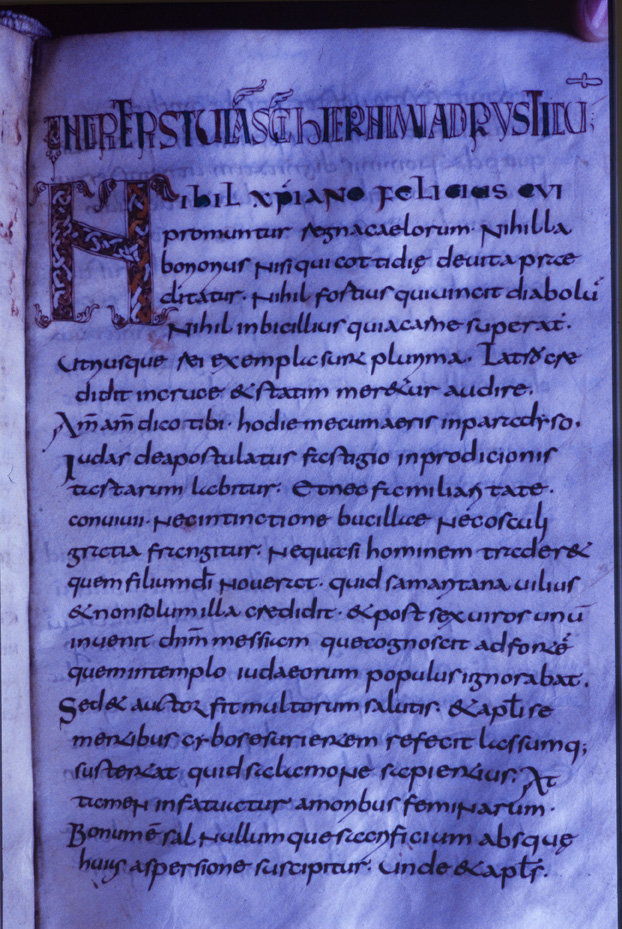 INCIPIT EPISTULA SCI HIERONIMI AD RUSTICU
Nihil xpiano felicius cui
promuntur regna caelorum. Nihil la
boriosius nisi qui cottidię de vita pre
ditatur. Nihil fortius qui vincit diabolu
Nihil inbicillius qui a carne superat.
Utriusque rei exempla sunt plurima. Latro cre
didit in cruce & statim mer&ur audire.
Am am dico tibi. hodie mecum aeris in paradyso.
Iudas de apostulatus fastigio in prodicionis
tartarum labitur. Et nec familiaritate
convivii. Nec intinctione bucillae Nec osculi
gratia frangitur. Nequasi hominem trader&
quem filium di Noverat. quid samaritana vilius
& non solum illa credidit. & post sex viros unu
invenit dnm messiam que cognoscit ad fonte
quem in templo iudaeorum populus ignorabat.
Sed & auctor fit multorum salutis. & aplis e
mentibus cybos esurientem refecit lassumq;
sustentat quid salamone sapientius. At
tamen infatuatur amoribus feminarum.
Bonum ē sal Nullumque sacrificium absquę
huius aspersione suscipitur. Unde & apls.